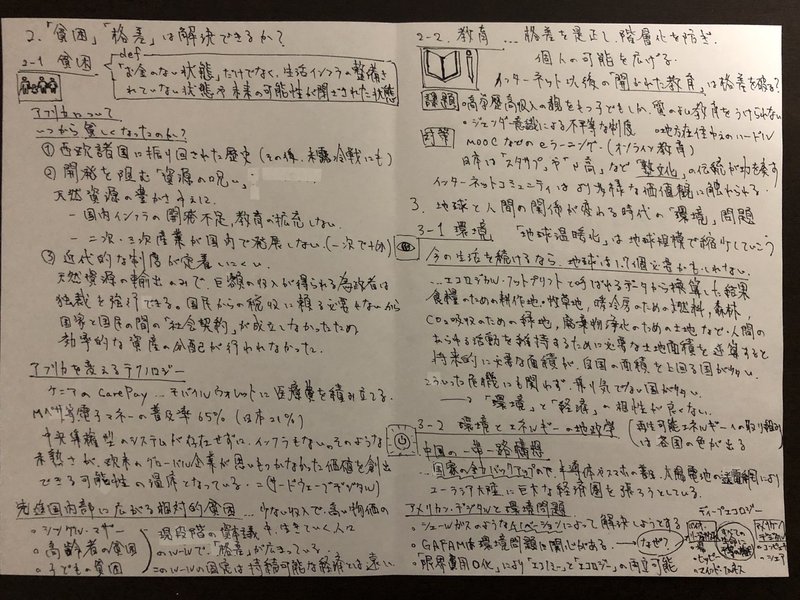 2.「貧困」「格差」は解決できるか?
2-1 貧困
def
「お金のない状態」だけでなく、生活インフラの整備さ
れていない状態や未来の可能性が閉ざされた状態
アフリカについて
いつから貧しくなったのか?
① 西欧諸国に振り回された歴史 (その後、米露冷戦にも)
② 開発を阻む「資源の呪い」
天然資源の豊かさゆえに
- 国内インフラの開発不足、教育が拡充しない
- 二次・三次産業が国内で発展しない (一次で十分)
③ 近代的な制度が定着しにくい
天然資源の輸出のみで、巨額の収入が得られる為政者は
独裁を強行できる。国民からの税収に頼る必要がないから
国家と国民の間の「社会契約」が成立しなかったため
効率的な資産の分配が行われなかった。
アフリカを変えるテクノロジー
ケニアのCarePay ... モバイルウォレットに医療費を積み立てる
電子マネーの普及率 65% (日本21%)
中央集権型のシステムが存在せずに、インフラもない。そのような
未熟さが、欧米のグローバル企業が思いもつかなかった価値を創出
できる可能性の温床となっている =(サードウェーブデジタル)
先進国内部に広がる相対的貧困 ... 少ない収入で、高い物価の
中、生きていく人口
◦ シングルマザー
◦ 高齢者の貧困
◦ 子どもの貧困
現段階の資本主義
のルールで、「格差」が広まっている
このルールの国家は持続可能な経済とは遠い
2-2. 教育 ... 格差を是正し、階層化を防ぎ、
個人の可能を広げる。
インターネット以後の「開かれた教育」は格差を破る?
課題 ◦高学歴高収入の親をもつ子どもしか、質のよい教育をうけられない
◦ジェンダー意識による不平等な制度 ◦地方在住ゆえのハードル
対策 MOOCなどのeラーニング (オンライン教育)
日本は「スタサプ」や「N高」など「塾文化」の伝統が功を奏す
インターネットコミュニティはより多様な価値観に触れられる。
3. 地球と人間の関係が変わる時代の「環境」問題
3-1 環境 「地球温暖化」は地球規模で縮小していこう
今の生活を続けるなら、地球は1.7個必要かもしれない
... エコロジカル・フットプリントと呼ばれるデータから換算した結果
食糧のための耕作地・牧草地、暖冷房のための燃料、森林、
CO₂吸収のための緑地、廃棄物浄化のための土地など、人間の
あらゆる活動を維持するために必要な土地面積を逆算すると
将来的に必要な面積が、自国の面積を上回る国が多い
こういった危機にも関わらず、乗り気でない国が多い
→「環境」と「経済」の相性が良くない。
3-2 環境とエネルギーの地政学 (再生可能エネルギーへの取り組み
は各国の色が出る
中国の一帯一路構想
... 国家の全力バックアップの下、半導体やスマホの養生、太陽電池の送電網により
ユーラシア大陸に巨大な経済圏を張ろうとしている。
アメリカン・デジタルと環境問題
◦ シェールガスのようなイノベーションによって解決しようとする
◦ GAFAMは環境問題に関心がある。 → なぜ?
◦「限界費用0化」により「エコノミー」と「エコロジー」の両立可能
ディープエコロジー
◦禅
◦ヒッピー
◦マインドフルネス